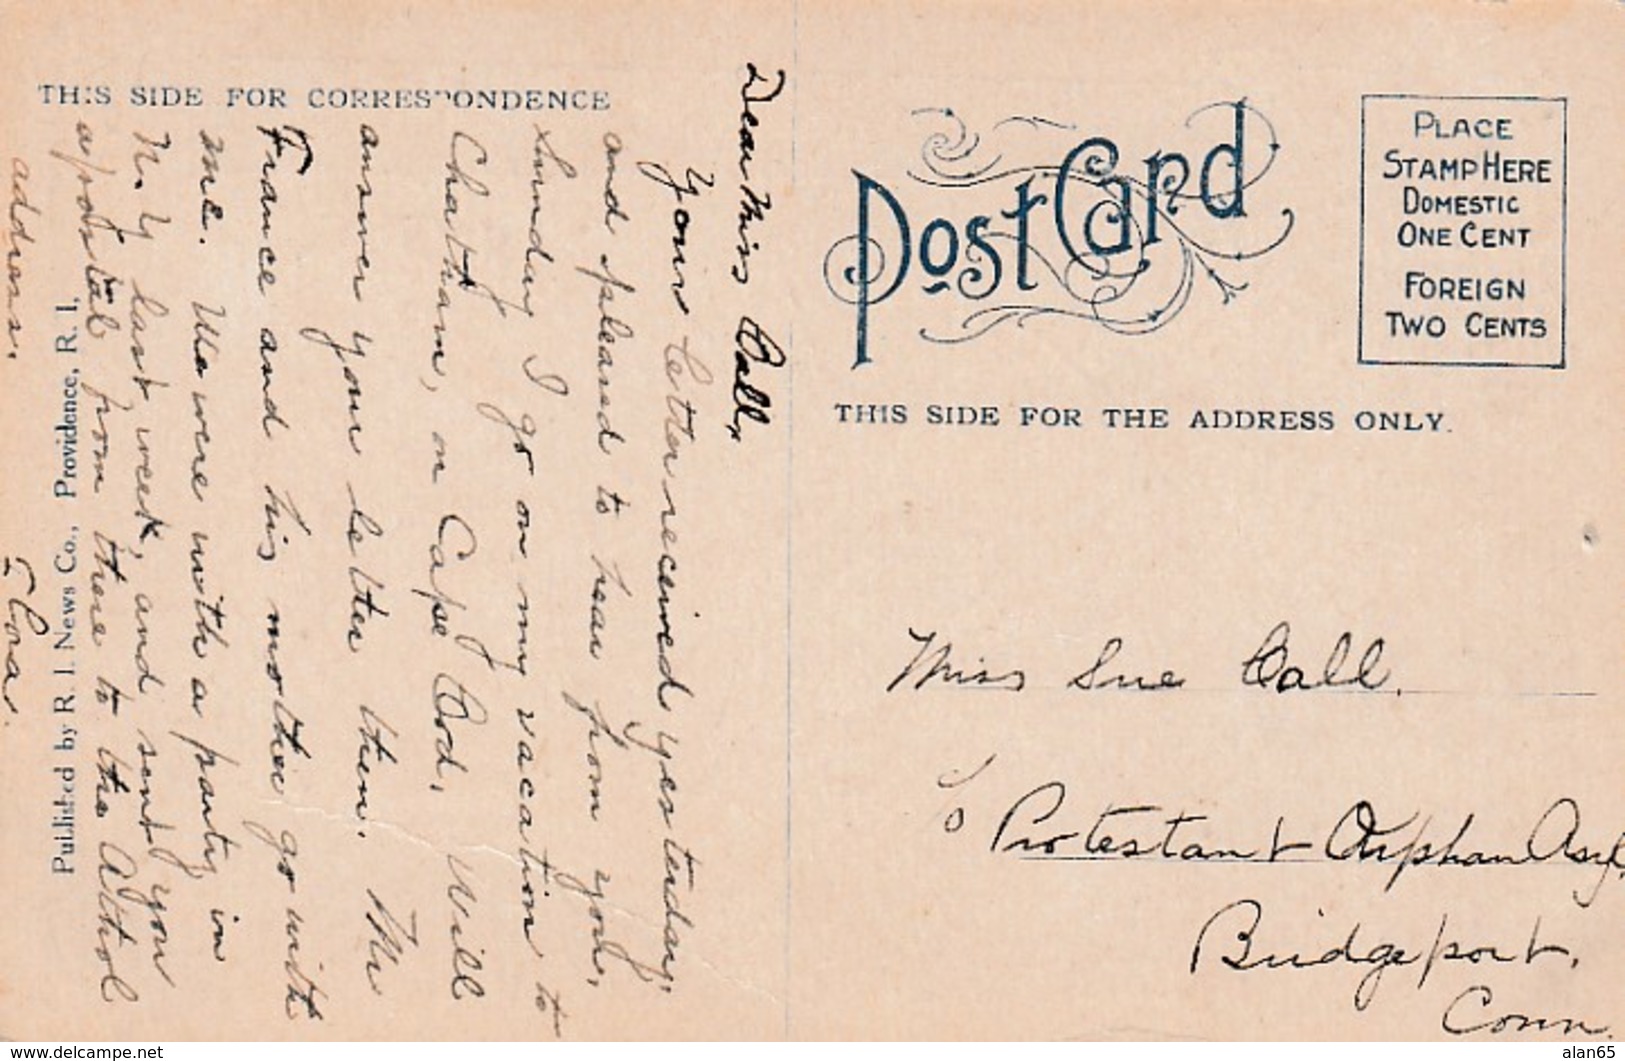 THIS SIDE FOR CORRESPONDENCE
Dear Miss Call,
Your letter received yesterday,
and pleased to hear from you,
Sunday I go on my vacation to
Chatham, on Cape Cod, Will
answer your letter then. Mr
France and his mother go with
me. We were with a party in
N.Y last week, and sent you
a postal from there to the Athol
address.
Published by R. I. News Co., Providence, R. I.
Post Card
PLACE
STAMP HERE
DOMESTIC
ONE CENT
FOREIGN
TWO CENTS
THIS SIDE FOR THE ADDRESS ONLY.
Miss Sue Call.
c/o Protestant Orphan Asyl
Bridgeport,
Conn.
alan65